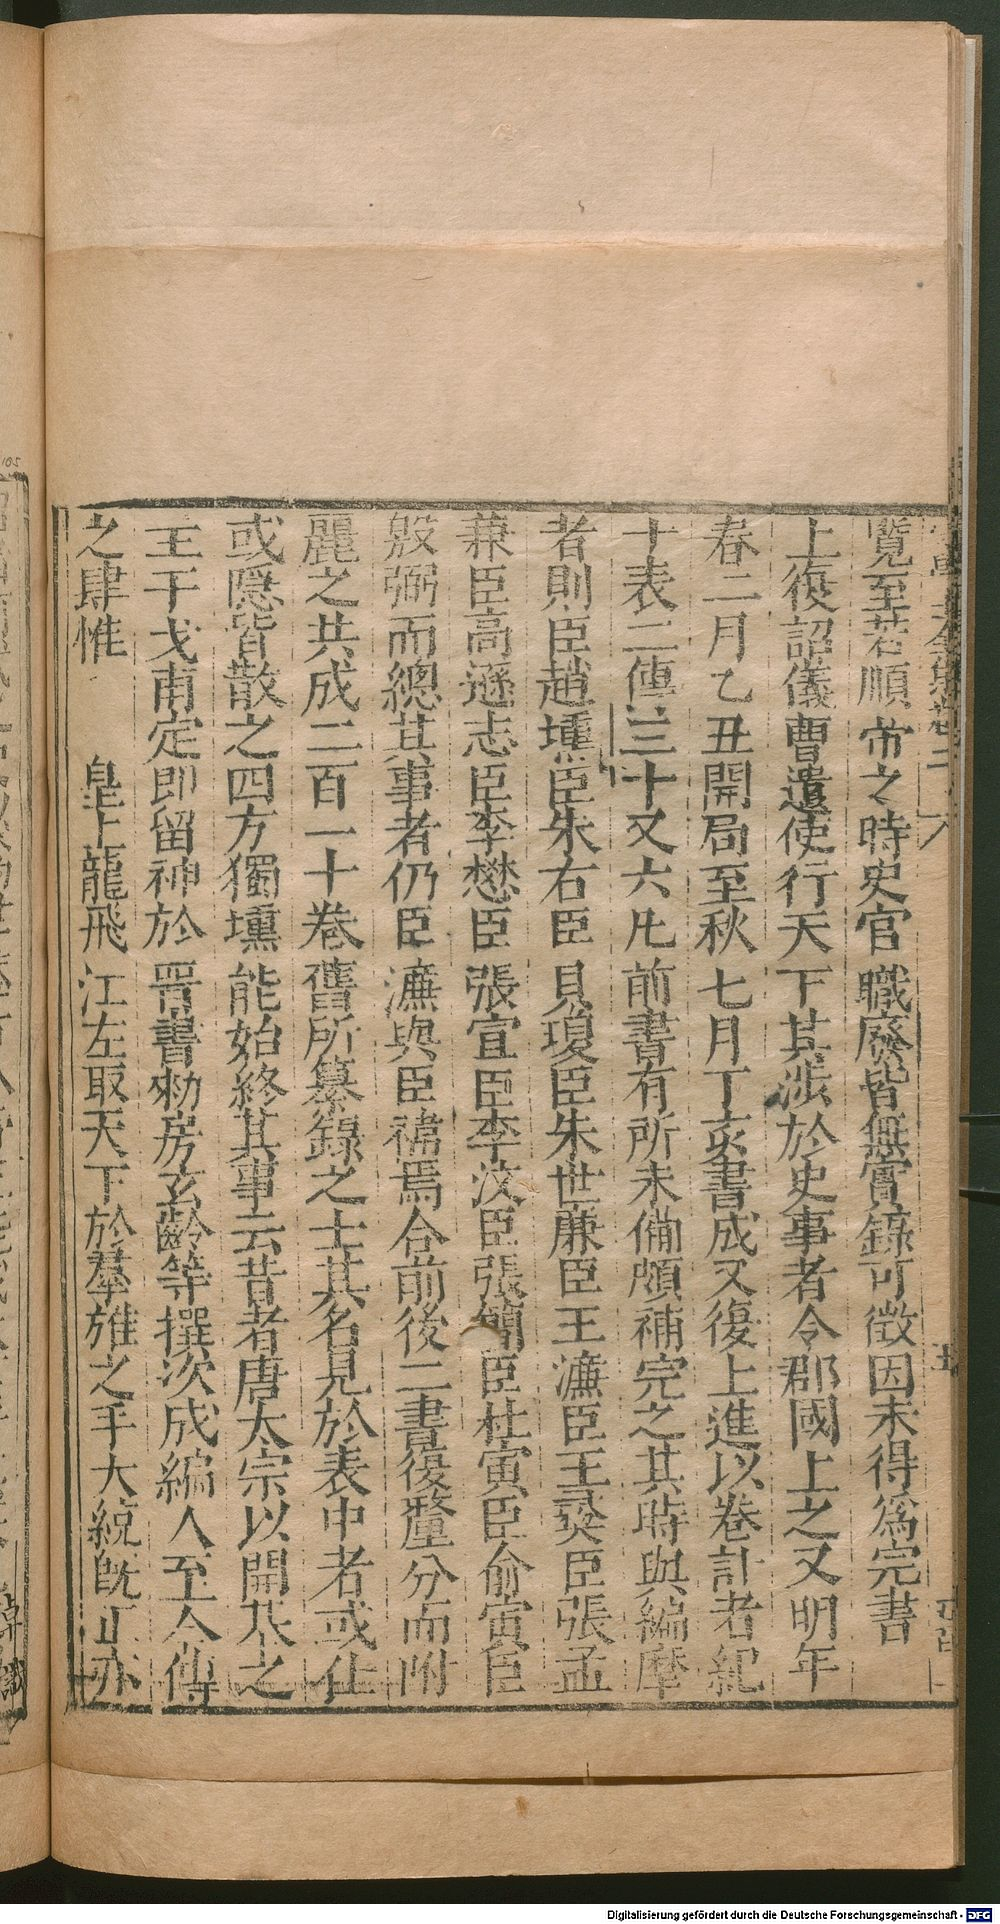 覽至若順帝之時史官職廢皆無實錄可徵因未得爲完書
上復詔儀曹遣使行天下其涉於史事者令郡國上之又明年
春二月乙丑開局至秋七月丁亥書成又復上進以卷計者紀
十表二傳三十又六凡前書有所未備頗補完之其時與編摩
者則臣趙壎臣朱右臣貝瓊臣朱世廉臣王濂臣王彛臣張孟
兼臣高遜志臣李懋臣張宣臣李汶臣張簡臣杜寅臣俞寅臣
殷弼而總其事者仍臣濂與臣禕焉合前後二書復釐分而附
麗之共成二百一十卷舊所纂錄之士其名見於表中者或仕
或隱皆散之四方獨壎能始終其事云昔者唐太宗以開基之
主干戈甫定即留神於晉書勑房玄齡等撰次成編人至今傳
之肆惟 皇上龍飛江左取天下於羣雄之手大統旣正亦
Digitalisierung gefördert durch die Deutsche Forschungsgemeinschaft - DFG